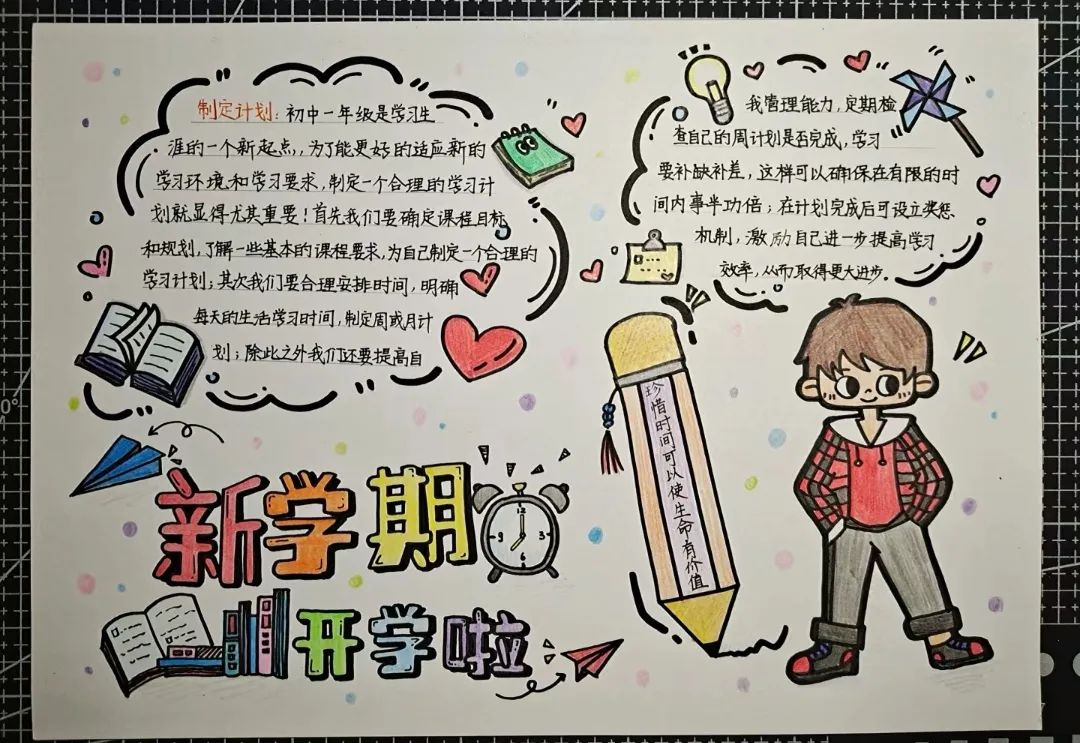 制定计划:初中一年级是学习生
涯的一个新起点,为了能更好的适应新的
学习环境和学习要求,制定一个合理的学习计
划就显得尤其重要!首先我们要确定课程目标
和规划,了解一些基本的课程要求,为自己制定一个合理的
学习计划;其次我们要合理安排时间,明确
每天的生活学习时间,制定周或月计
划;除此之外我们还要提高自
我管理能力,定期检
查自己的周计划是否完成,学习
要补缺补差,这样可以确保在有限的时
间内事半功倍;在计划完成后可设立奖惩
机制,激励自己进一步提高学习
效率,从而取得更大进步。
珍惜时间可以使生命有价值
新学期
12
3
6
9
开学啦